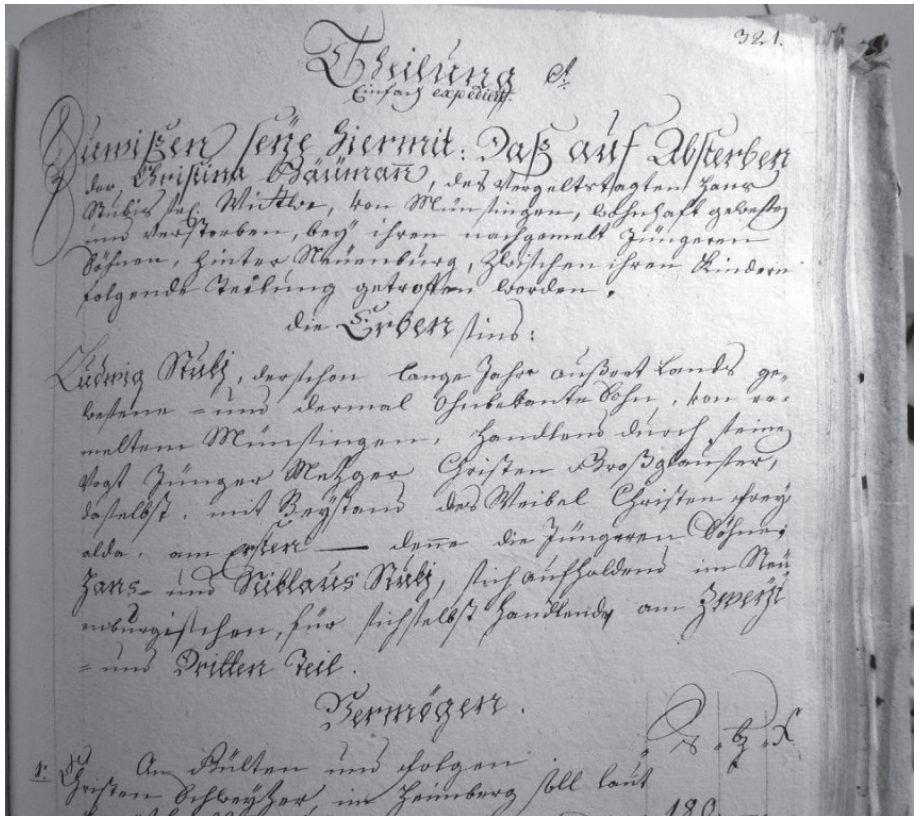 321.
Theilung
Einfach expediert.
Zuwißen seÿe hiermit: Daß auf Absterben
der Christina Bäumann, des vergeltstagten Hans
Stubis sel. Wittwe, von Münsingen, wohnhaft gewesen
und verstorben, beÿ ihren nachgemelt Jüngeren
Söhnen, hinter Neüenburg, zwischen ihren Kindern
folgende Teilung getroffen worden.
die Erben sins:
Ludwig Stubj, der schon lange Jahre außert Lands ge-
wesene = und dermal Ohnbekante Sohn, von er-
meltem Münsingen, handlend durch seinen
Vogt Jünger Metzger Christen Großglauser,
daselbst, mit Beÿstand des Weibel Christen Freÿ
alda, am Ersten — denne die Jüngeren Söhne;
Hans- und Niklaus Stubj, sich aufhaldend im Neü
enburgischen, für sich selbst handlende, am Zweÿt
= und Dritten Teil.
Vermögen.
1. An Gülten und folgen
Christen Schweÿtzer, im Hennberg soll laut
180